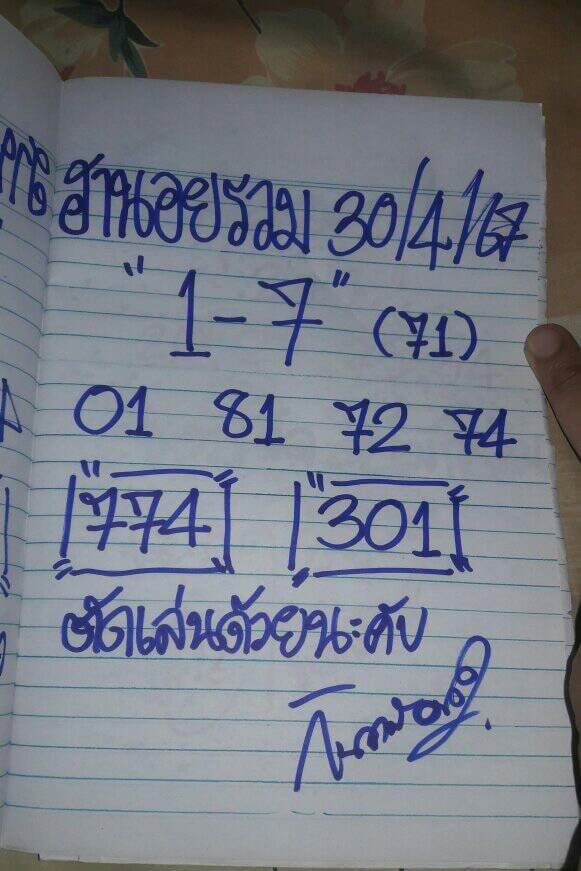 ฮานอยรวม 30/4/67
"1-7" (71)
01 81 72 74
"774" "301"
ตัดเล่นด้วยนะคับ